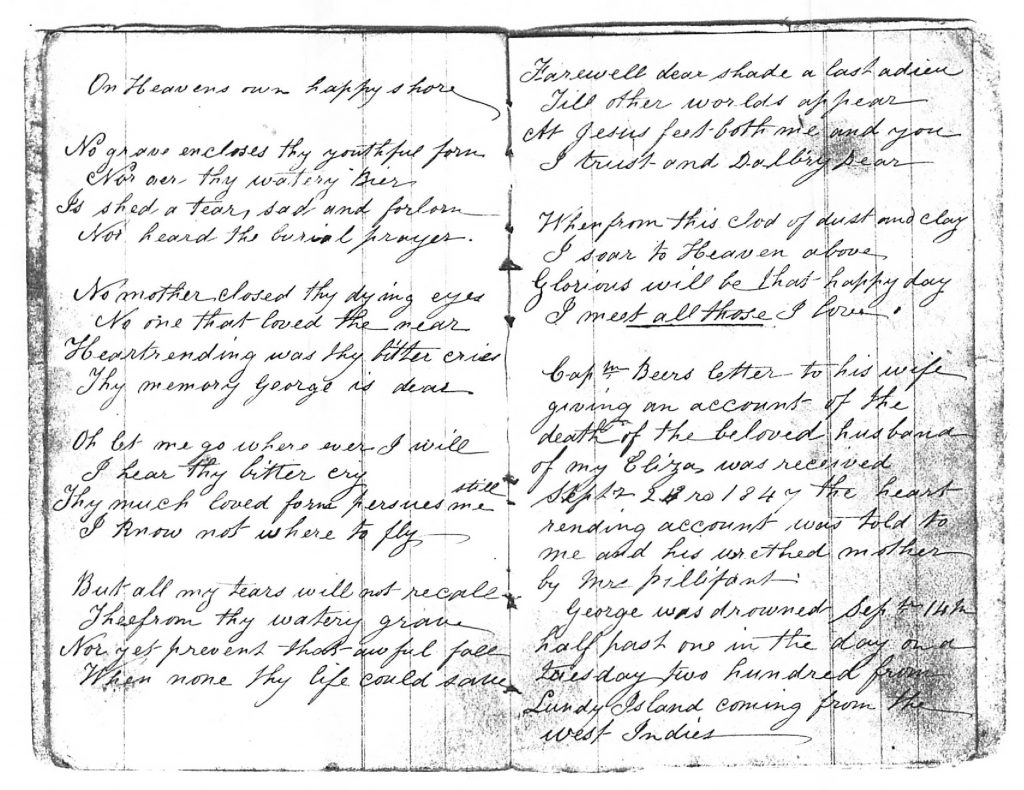 On Heavens own happy shore
No grave encloses thy youthful form
Nor oer thy watery Bier
Is shed a tear, sad and forlorn
Nor heard the burial prayer.
No mother closed thy dying eyes
No one that loved the near
Heartrending was thy bitter cries
Thy memory George is dear
Oh let me go where ever I will
I hear thy bitter cry
still
Thy much loved form persues me
I know not where to fly
But all my tears will not recall
Thee from thy watery grave
Nor yet prevent that awful fall
When none thy life could save
Farewell dear shade a last adieu
Till other worlds appear
At Jesus feet both me and you
I trust and Dalbry Dear
When from this clod of dust and clay
I soar to Heaven above
Glorious will be that happy day
I meet all those I love.
Capm Beers letter to his wife
giving an account of the
death of the beloved husband
of my Eliza was received
Sept 23rd 1847 the heart
rending account was told to
me and his wrethed mother
by Mrs Pillifant.
George was drowned Sepm 14th
half past one in the day on a
Tuesday two hundred from
Lundy Island coming from the
west Indies